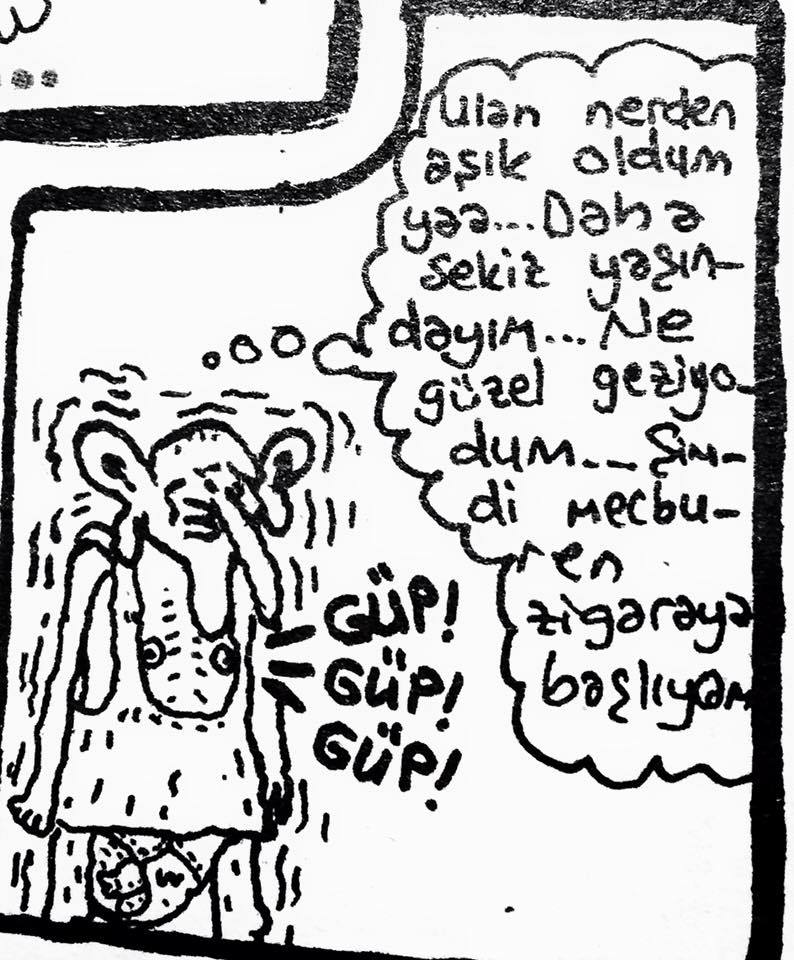 Ulan nerden
aşık oldum
yaa...Daha
sekiz yaşın-
dayım... Ne
güzel geziyo-
dum... Şim-
di mecbu-
ren
zigaraya
başlıyam
GÜP!
GÜP!
GÜP!